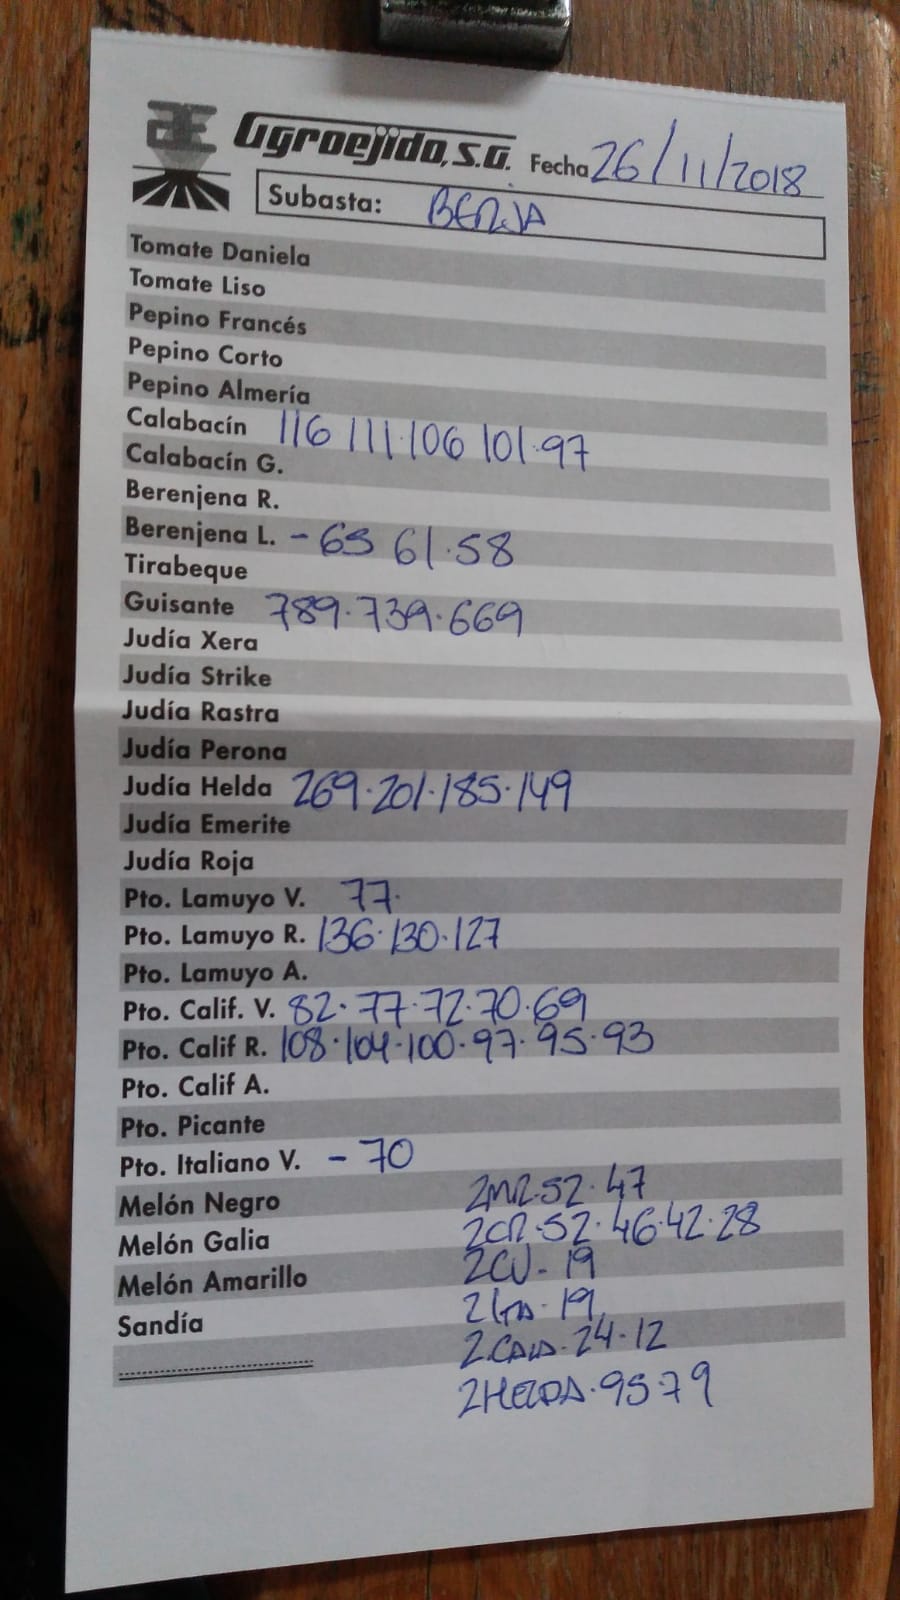 Agroejido, S.A. Fecha 26/11/2018
Subasta: BERJA
Tomate Daniela
Tomate Liso
Pepino Francés
Pepino Corto
Pepino Almería
Calabacín 116 111·106 101·97
Calabacín G.
Berenjena R.
Berenjena L. - 65 61·58
Tirabeque
Guisante 789·739·669
Judía Xera
Judía Strike
Judía Rastra
Judía Perona
Judía Helda 269·201·185·149
Judía Emerite
Judía Roja
Pto. Lamuyo V. 77·
Pto. Lamuyo R. 136·130·127
Pto. Lamuyo A.
Pto. Calif. V. 82·77·72·70·69
Pto. Calif R. 108·104·100·97·95·93
Pto. Calif A.
Pto. Picante
Pto. Italiano V. - 70
Melón Negro 2MR·52·47
Melón Galia 2CR·52·46·42·28
Melón Amarillo 2CV- 19
Sandía 2 ITA· 19
2·CALA·24·12
2HELDA·95·79